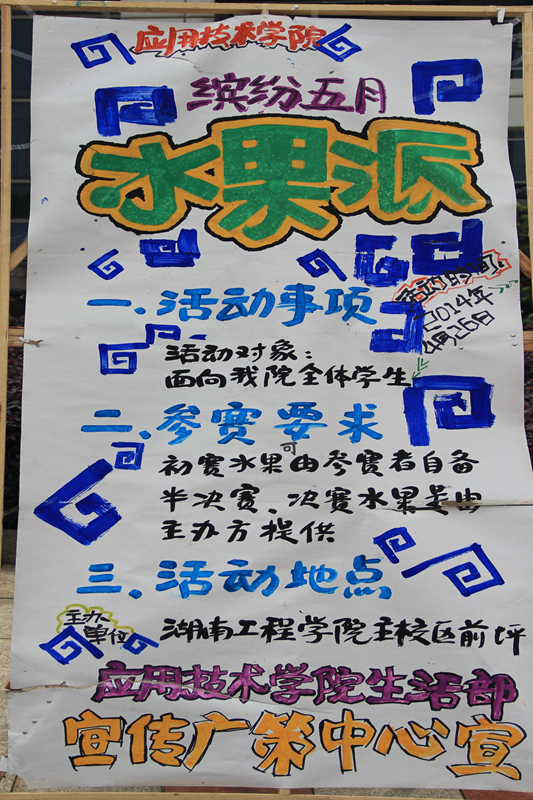 应用技术学院
缤纷五月
水果派
活动时间:
2014年
4月26日
一、活动事项
活动对象:
面向我院全体学生
二、参赛要求
初赛水果可由参赛者自备
半决赛、决赛水果是由
主办方提供
三、活动地点
湖南工程学院主校区前坪
主办
单位
应用技术学院生活部
宣传广策中心宣